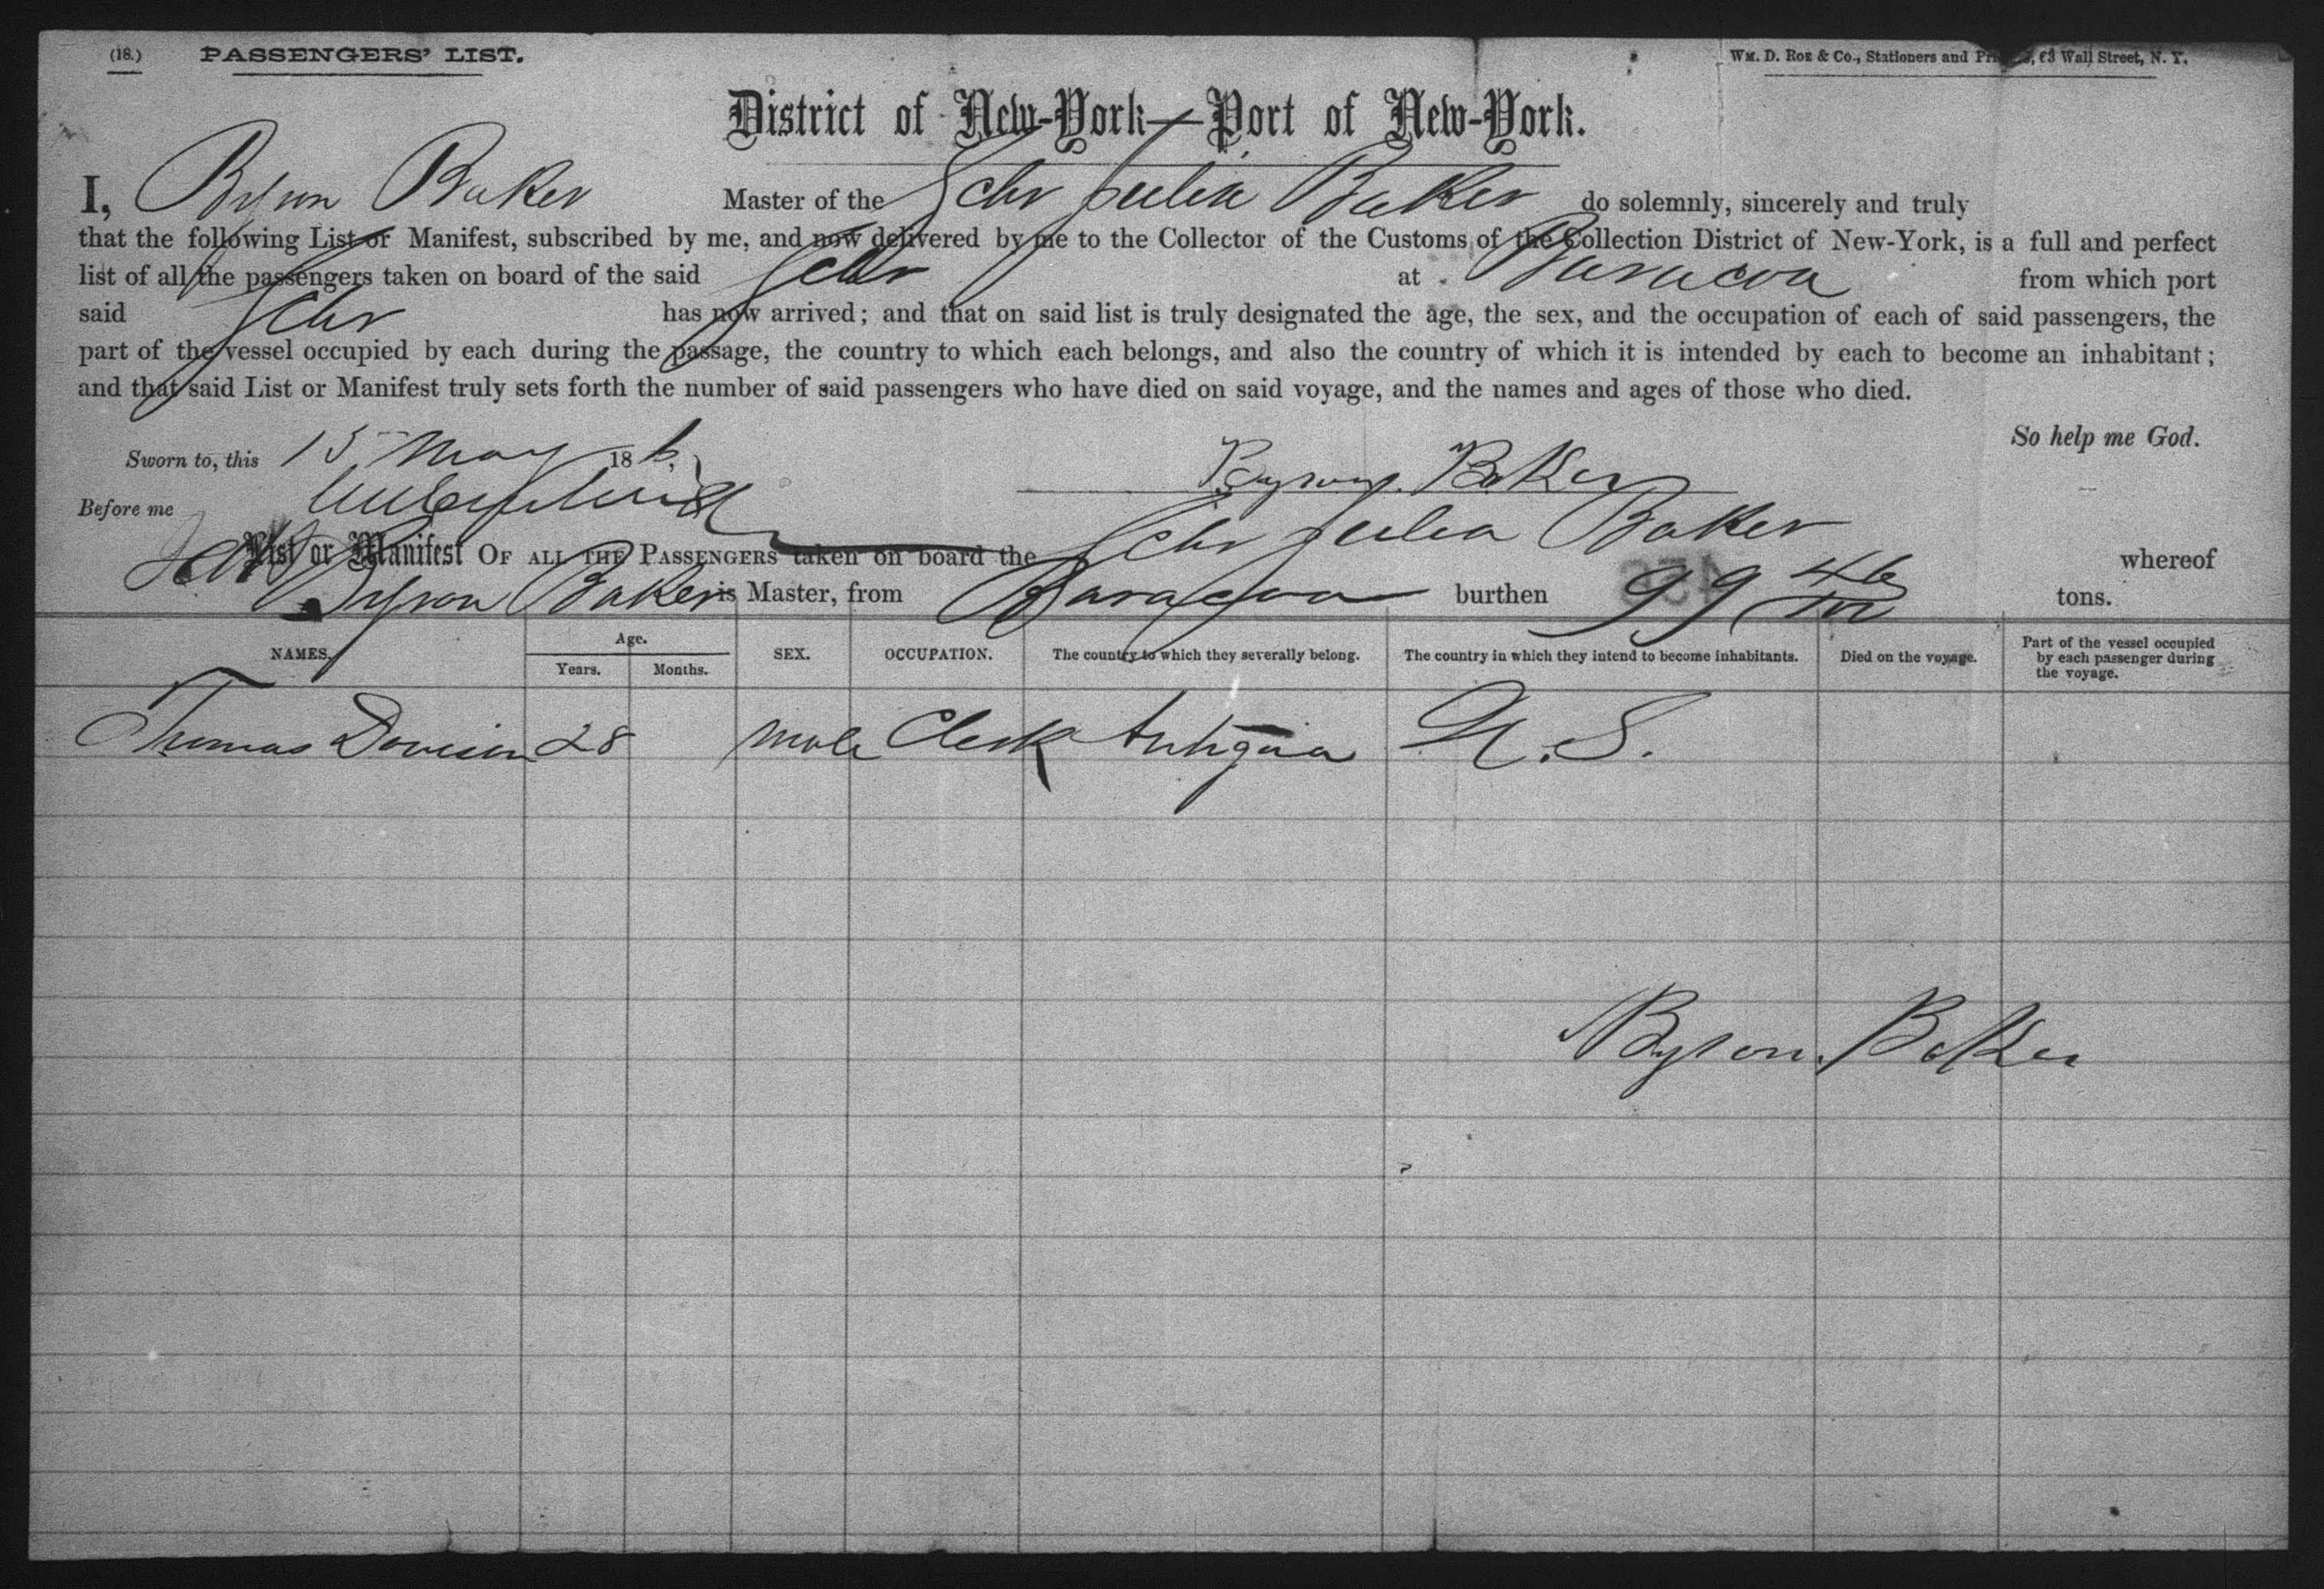 (18.) PASSENGERS' LIST. Wm. D. Roe & Co., Stationers and 63 Wall Street, N. Y.
District of New-York—Port of New-York.
I, Byron Baker Master of the Schr Julia Baker do solemnly, sincerely and truly
that the following List or Manifest, subscribed by me, and now delivered by me to the Collector of the Customs of the Collection District of New-York, is a full and perfect
list of all the passengers taken on board of the said Schr at Baracoa from which port
said Schr has now arrived; and that on said list is truly designated the age, the sex, and the occupation of each of said passengers, the
part of the vessel occupied by each during the passage, the country to which each belongs, and also the country of which it is intended by each to become an inhabitant;
and that said List or Manifest truly sets forth the number of said passengers who have died on said voyage, and the names and ages of those who died.
So help me God.
Sworn to, this 15 May 18
Byron Baker
Before me
List or Manifest OF ALL THE PASSENGERS taken on board the Schr Julia Baker whereof
Byron Baker is Master, from Baracoa burthen 99 46/100 tons.
NAMES. Age. Years. Months. SEX. OCCUPATION. The country to which they severally belong. The country in which they intend to become inhabitants. Died on the voyage. Part of the vessel occupied by each passenger during the voyage.
Thomas 28 male Clerk Antigua U.S.
Byron Baker